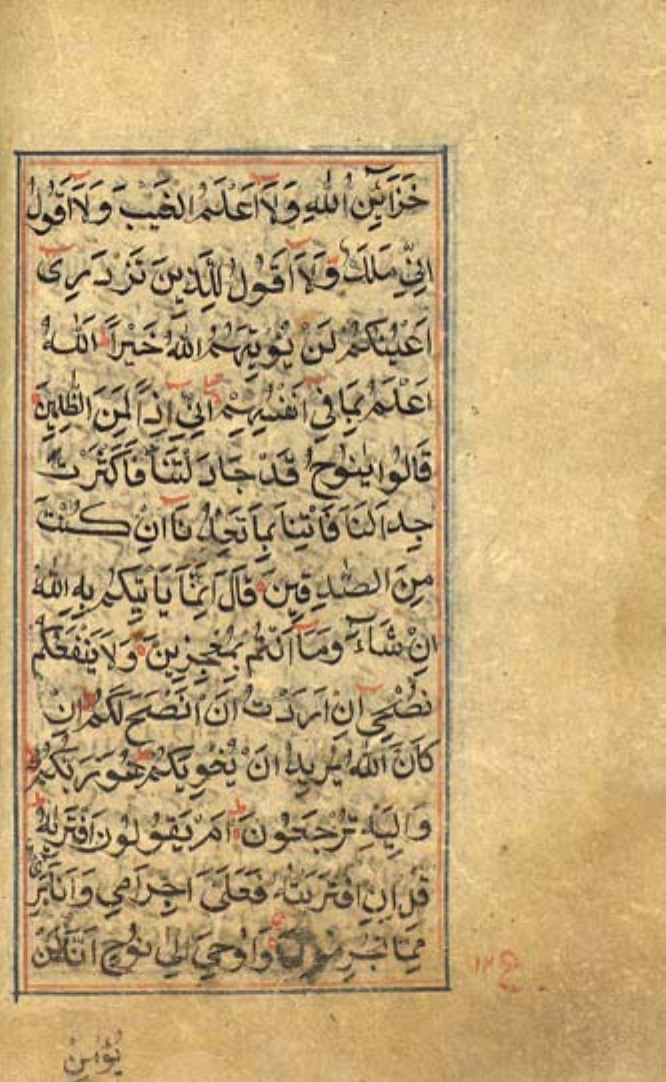 خَزَآئِنُ اللّٰهِ وَلَآ اَعْلَمُ الْغَيْبَ وَلَآ اَقُولُ
اِنِّي مَلَكٌ وَلَآ اَقُولُ لِلَّذِينَ تَزْدَرِىٓ
اَعْيُنُكُمْ لَنْ يُؤْتِيَهُمُ اللّٰهُ خَيْرًا ط اَللّٰهُ
اَعْلَمُ بِمَا فِىٓ اَنْفُسِهِمْ اِنِّىٓ اِذًا لَمِنَ الظّٰلِمِينَ
قَالُوا يٰنُوحُ قَدْ جَادَلْتَنَا فَاَكْثَرْتَ
جِدَالَنَا فَأْتِنَا بِمَا تَعِدُنَآ اِنْ كُنْتَ
مِنَ الصّٰدِقِينَ قَالَ اِنَّمَا يَأْتِيكُمْ بِهِ اللّٰهُ
اِنْ شَآءَ وَمَآ اَنْتُمْ بِمُعْجِزِينَ وَلَا يَنْفَعُكُمْ
نُصْحِىٓ اِنْ اَرَدْتُ اَنْ اَنْصَحَ لَكُمْ اِنْ
كَانَ اللّٰهُ يُرِيدُ اَنْ يُغْوِيَكُمْ هُوَ رَبُّكُمْ
وَاِلَيْهِ تُرْجَعُونَ ط اَمْ يَقُولُونَ افْتَرٰىهُ
قُلْ اِنِ افْتَرَيْتُهُ فَعَلَىَّ اِجْرَامِي وَاَنَا بَرِىٓءٌ
مِمَّا تُجْرِمُونَ وَاُوحِيَ اِلٰى نُوحٍ اَنَّهُ لَنْ
ع
يُؤْمِنَ